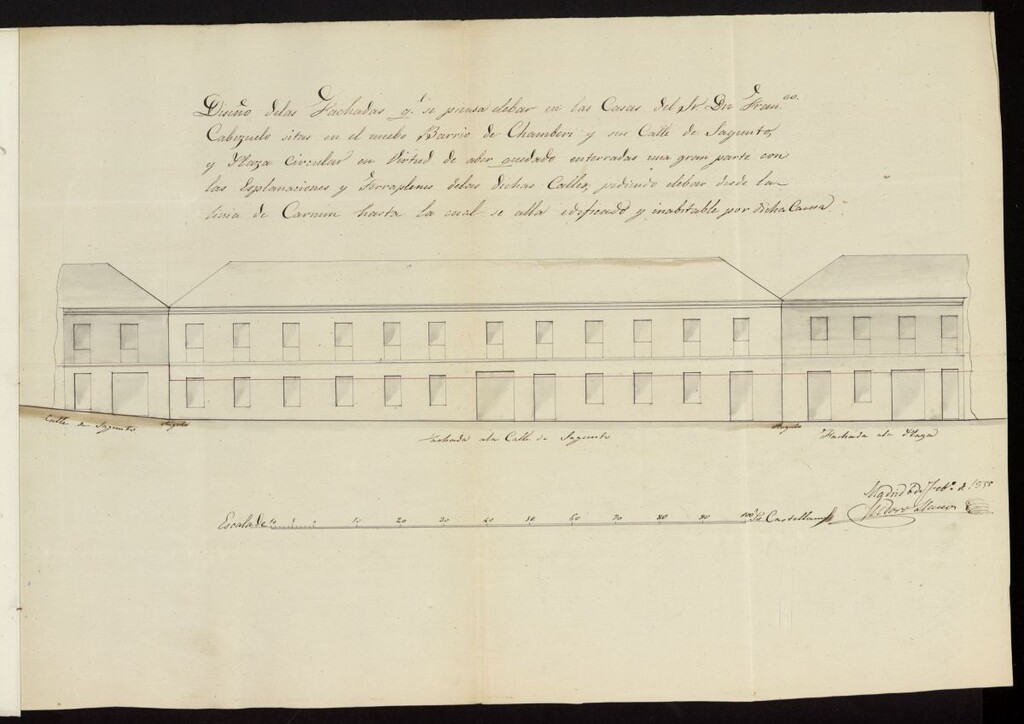 Diseño delas Fachadas q.e se piensa elebar en las Casas del Sr. Dn. Fran.co
Cabezuelo sitas en el nuebo Barrio de Chamberi y su Calle de Sagunto,
y Plaza Circular en Virtud de aber quedado enterradas una gran parte con
las Esplanaciones y Terraplenes delas dichas Calles, pidiendo elebar desde la
linia de Carmin hasta la cual se alla edificado y inabitable por dicha Causa.
Calle de Sagunto
Angulo
Fachada ala Calle de Sagunto
Angulo
Fachada ala Plaza
Madrid de Feb.o de 185
Escala de 10 10 20 30 40 50 60 70 80 90 100 Ps. Castellanos